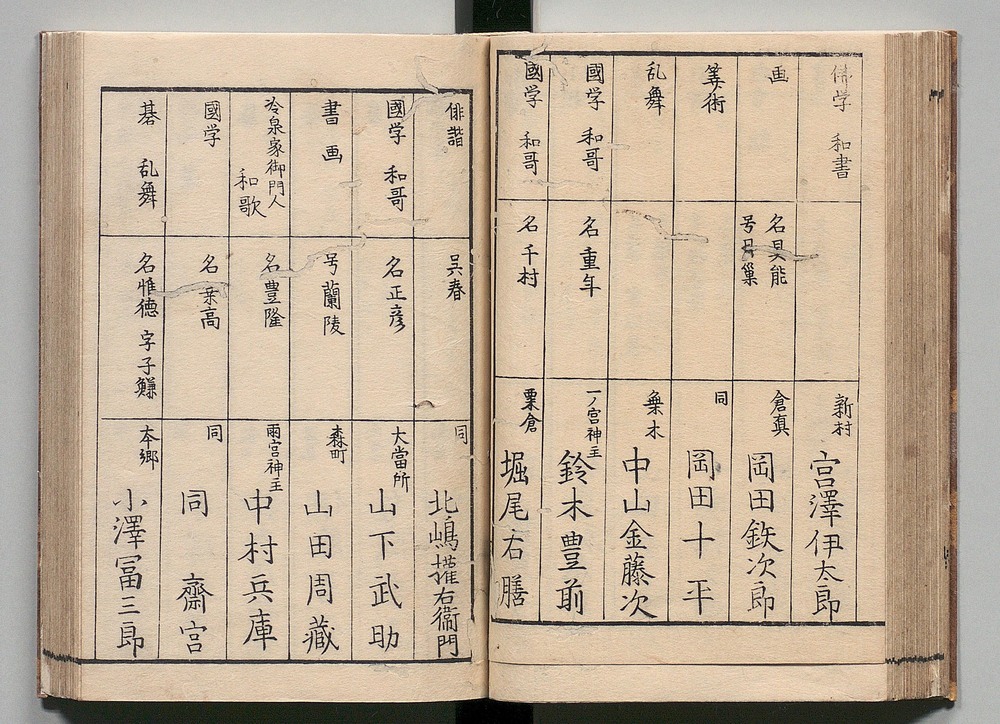 儒学 和書
新村
宮澤伊太郎
画
名具能
号月巣
倉真
岡田鉄次郎
筭術
同
岡田十平
乱舞
乗木
中山金藤次
國学 和哥
名重年
一ノ宮神主
鈴木豊前
國学 和哥
名千村
粟倉
堀尾右膳
俳諧
呉春
同
北嶋権右衛門
國学 和哥
名正彦
大當所
山下武助
書画
号蘭陵
森町
山田周藏
冷泉家御門人
和歌
名豊隆
雨宮神主
中村兵庫
國学
名乗高
同
同 齋宮
碁 乱舞
名惟德 字子鎌
本郷
小澤冨三郎